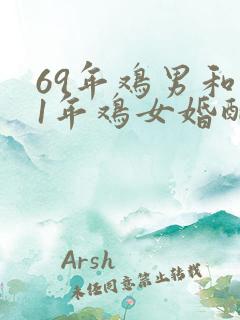 69年鸡男和
1年鸡女婚配
Arsh
未经同意禁止转载